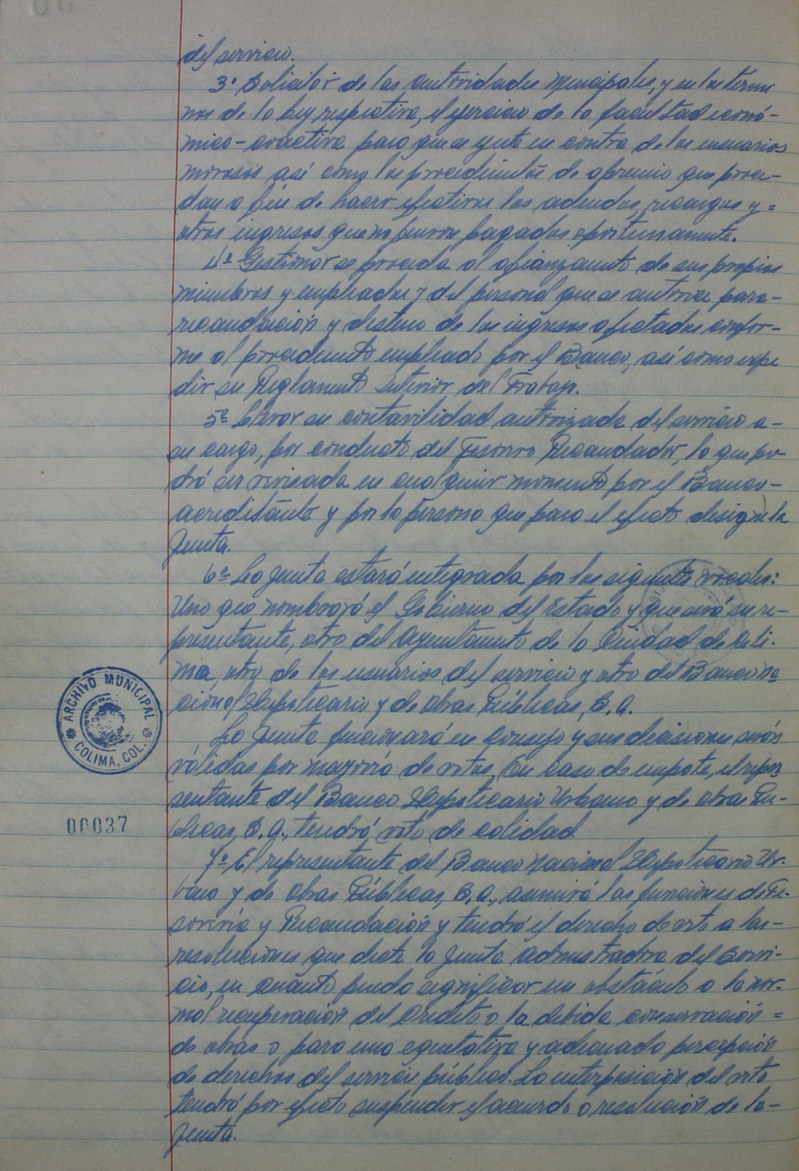 del servicio.
3º Solicitar de las autoridades Municipales, y en los térmi
nos de la ley respectiva, el ejercicio de la facultad econó-
mico-coactiva para que se ejecute en contra de los usuarios
morosos así como los procedimientos de apremio que proce-
dan a fin de hacer efectivos los adeudos, recargos y=
otros ingresos que no fueren pagados oportunamente.
4º Gestionar se proceda al afianzamiento de sus propios
miembros y empleados y del personal que se autorice para-
recaudación y destino de los ingresos afectados confor-
me al procedimiento empleado por el Banco, así como expe
dir su Reglamento Interior del Trabajo.
5º Llevar su contabilidad autorizada del servicio a-
su cargo, por conducto del Tesorero Recaudador, la que po-
drá ser revisada en cualquier momento por el Banco-
acreditante y por la persona que para el efecto designe la
Junta.
6º La Junta estará integrada por los siguientes vocales:
Uno que nombrará el Gobierno del Estado y que será su re-
presentante, otro del Ayuntamiento de la Ciudad de Coli-
ma, otro de los usuarios del servicio y otro del Banco Na
cional Hipotecario y de Obras Públicas, S. A.
La Junta funcionará en Consejo y sus decisiones serán
válidas por mayoría de votos, en caso de empate, el repre
sentante del Banco Hipotecario Urbano y de Obras Pú-
blicas, S. A., tendrá voto de calidad
7º El representante del Banco Nacional Hipotecario Ur-
bano y de Obras Públicas, S. A., asumirá las funciones de Te-
sorería y Recaudación y tendrá el derecho de veto a las-
resoluciones que dicte la Junta Administradora del Servi-
cio, en cuánto pueda significar un obstáculo a la nor-
mal recuperación del Crédito o la debida conservación=
de obras o para una equitativa y adecuada percepción
de derechos del servicio público. La interposición del veto
tendrá por efecto suspender el acuerdo o resolución de la-
Junta.
ARCHIVO MUNICIPAL
COLIMA, COL.
00037